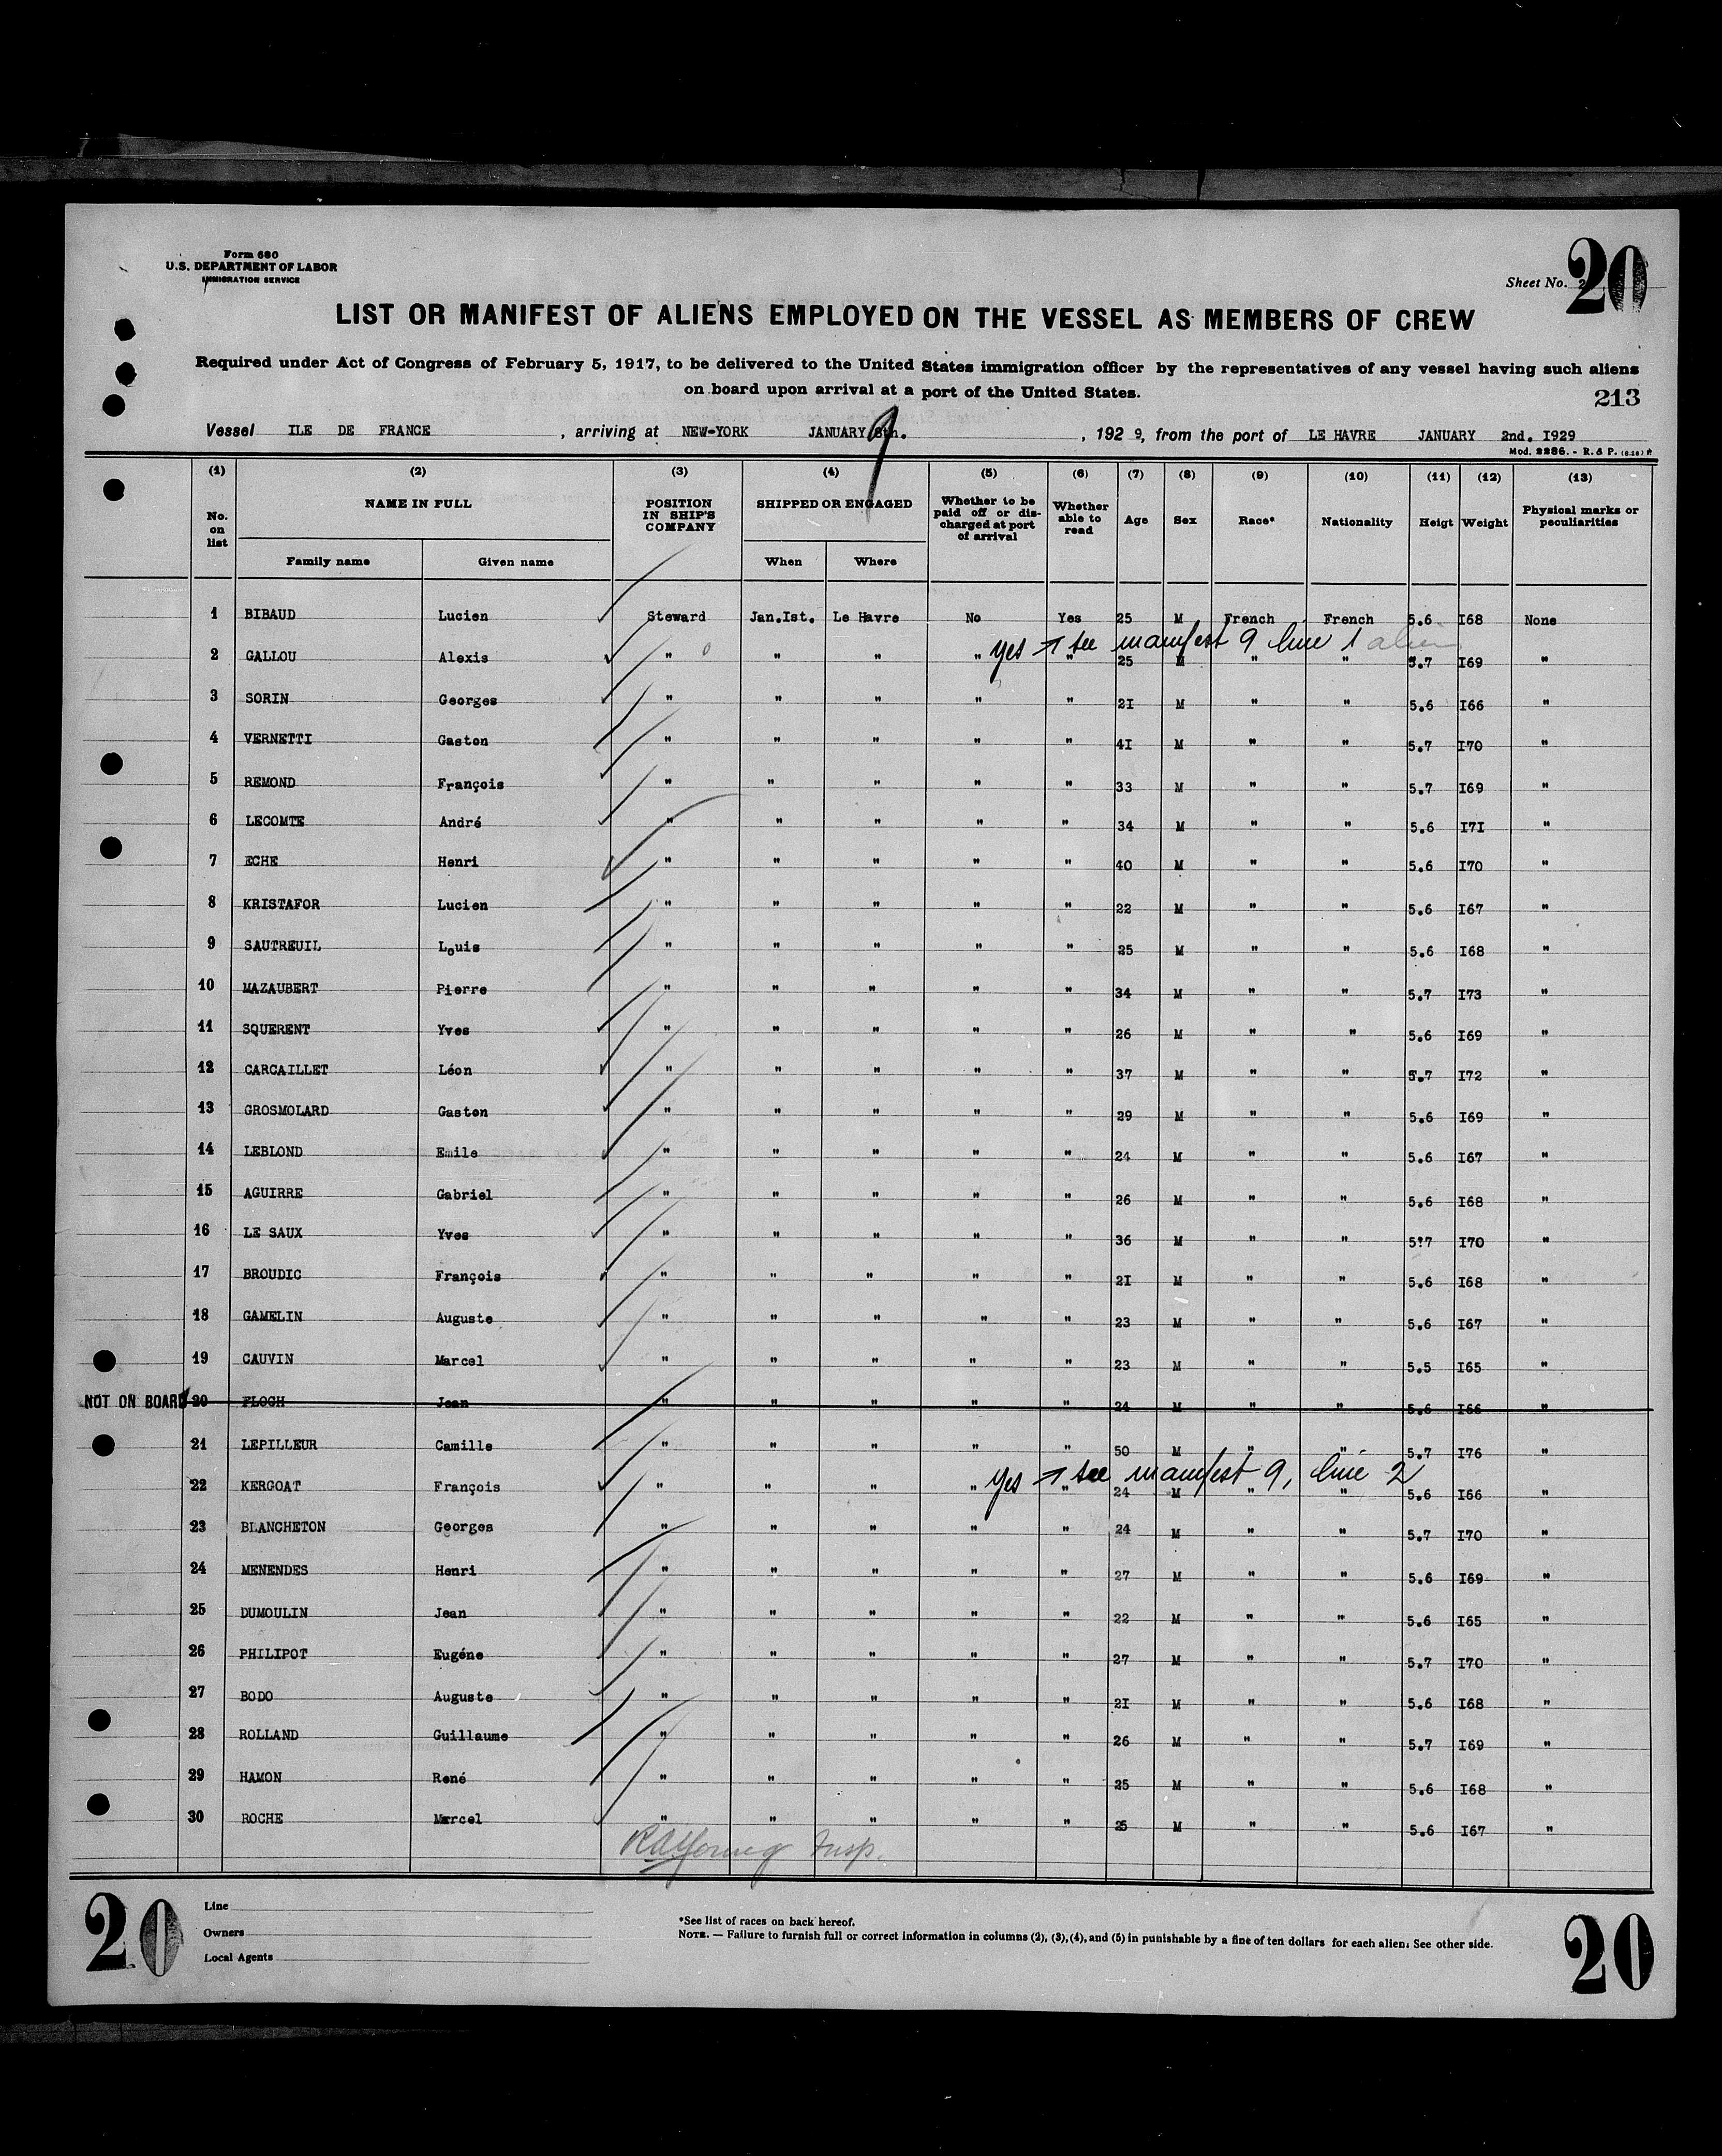 Form 680
U.S. DEPARTMENT OF LABOR
IMMIGRATION SERVICE
Sheet No. 20
LIST OR MANIFEST OF ALIENS EMPLOYED ON THE VESSEL AS MEMBERS OF CREW
Required under Act of Congress of February 5, 1917, to be delivered to the United States immigration officer by the representatives of any vessel having such aliens
on board upon arrival at a port of the United States.
213
Vessel ILE DE FRANCE, arriving at NEW-YORK JANUARY 8th. 9, 1929, from the port of LE HAVRE JANUARY 2nd. I929
Mod. 2286. - R. & P. (8.28)
(1) (2) (3) (4) (5) (6) (7) (8) (9) (10) (11) (12) (13)
No. on list NAME IN FULL POSITION IN SHIP'S COMPANY SHIPPED OR ENGAGED Whether to be paid off or discharged at port of arrival Whether able to read Age Sex Race* Nationality Heigt Weight Physical marks or peculiarities
Family name Given name When Where
1 BIBAUD Lucien Steward Jan.Ist. Le Havre No Yes 25 M French French 5.6 I68 None
yes → see manifest 9 line 1 alien
2 GALLOU Alexis " " " " " 25 M " " 5.7 I69 "
3 SORIN Georges " " " " " 2I M " " 5.6 I66 "
4 VERNETTI Gaston " " " " " 4I M " " 5.7 I70 "
5 REMOND François " " " " " 33 M " " 5.7 I69 "
6 LECOMTE André " " " " " 34 M " " 5.6 I7I "
7 ECHE Henri " " " " " 40 M " " 5.6 I70 "
8 KRISTAFOR Lucien " " " " " 22 M " " 5.6 I67 "
9 SAUTREUIL Louis " " " " " 25 M " " 5.6 I68 "
10 MAZAUBERT Pierre " " " " " 34 M " " 5.7 I73 "
11 SQUERENT Yves " " " " " 26 M " " 5.6 I69 "
12 CARCAILLET Léon " " " " " 37 M " " 5.7 I72 "
13 GROSMOLARD Gaston " " " " " 29 M " " 5.6 I69 "
14 LEBLOND Emile " " " " " 24 M " " 5.6 I67 "
15 AGUIRRE Gabriel " " " " " 26 M " " 5.6 I68 "
16 LE SAUX Yves " " " " " 36 M " " 5?7 I70 "
17 BROUDIC François " " " " " 2I M " " 5.6 I68 "
18 GAMELIN Auguste " " " " " 23 M " " 5.6 I67 "
19 CAUVIN Marcel " " " " " 23 M " " 5.5 I65 "
NOT ON BOARD 20 FLOCH Jean " " " " " 24 M " " 5.6 I66 "
21 LEPILLEUR Camille " " " " " 50 M " " 5.7 I76 "
yes → see manifest 9, line 2
22 KERGOAT François " " " " " 24 M " " 5.6 I66 "
23 BLANCHETON Georges " " " " " 24 M " " 5.7 I70 "
24 MENENDES Henri " " " " " 27 M " " 5.6 I69 "
25 DUMOULIN Jean " " " " " 22 M " " 5.6 I65 "
26 PHILIPOT Eugéne " " " " " 27 M " " 5.7 I70 "
27 BODO Auguste " " " " " 2I M " " 5.6 I68 "
28 ROLLAND Guillaume " " " " " 26 M " " 5.7 I69 "
29 HAMON René " " " " " 25 M " " 5.6 I68 "
30 ROCHE Marcel " " " " " 25 M " " 5.6 I67 "
Insp.
20
Line
Owners
Local Agents
*See list of races on back hereof.
NOTE. — Failure to furnish full or correct information in columns (2), (3), (4), and (5) in punishable by a fine of ten dollars for each alien. See other side.
20